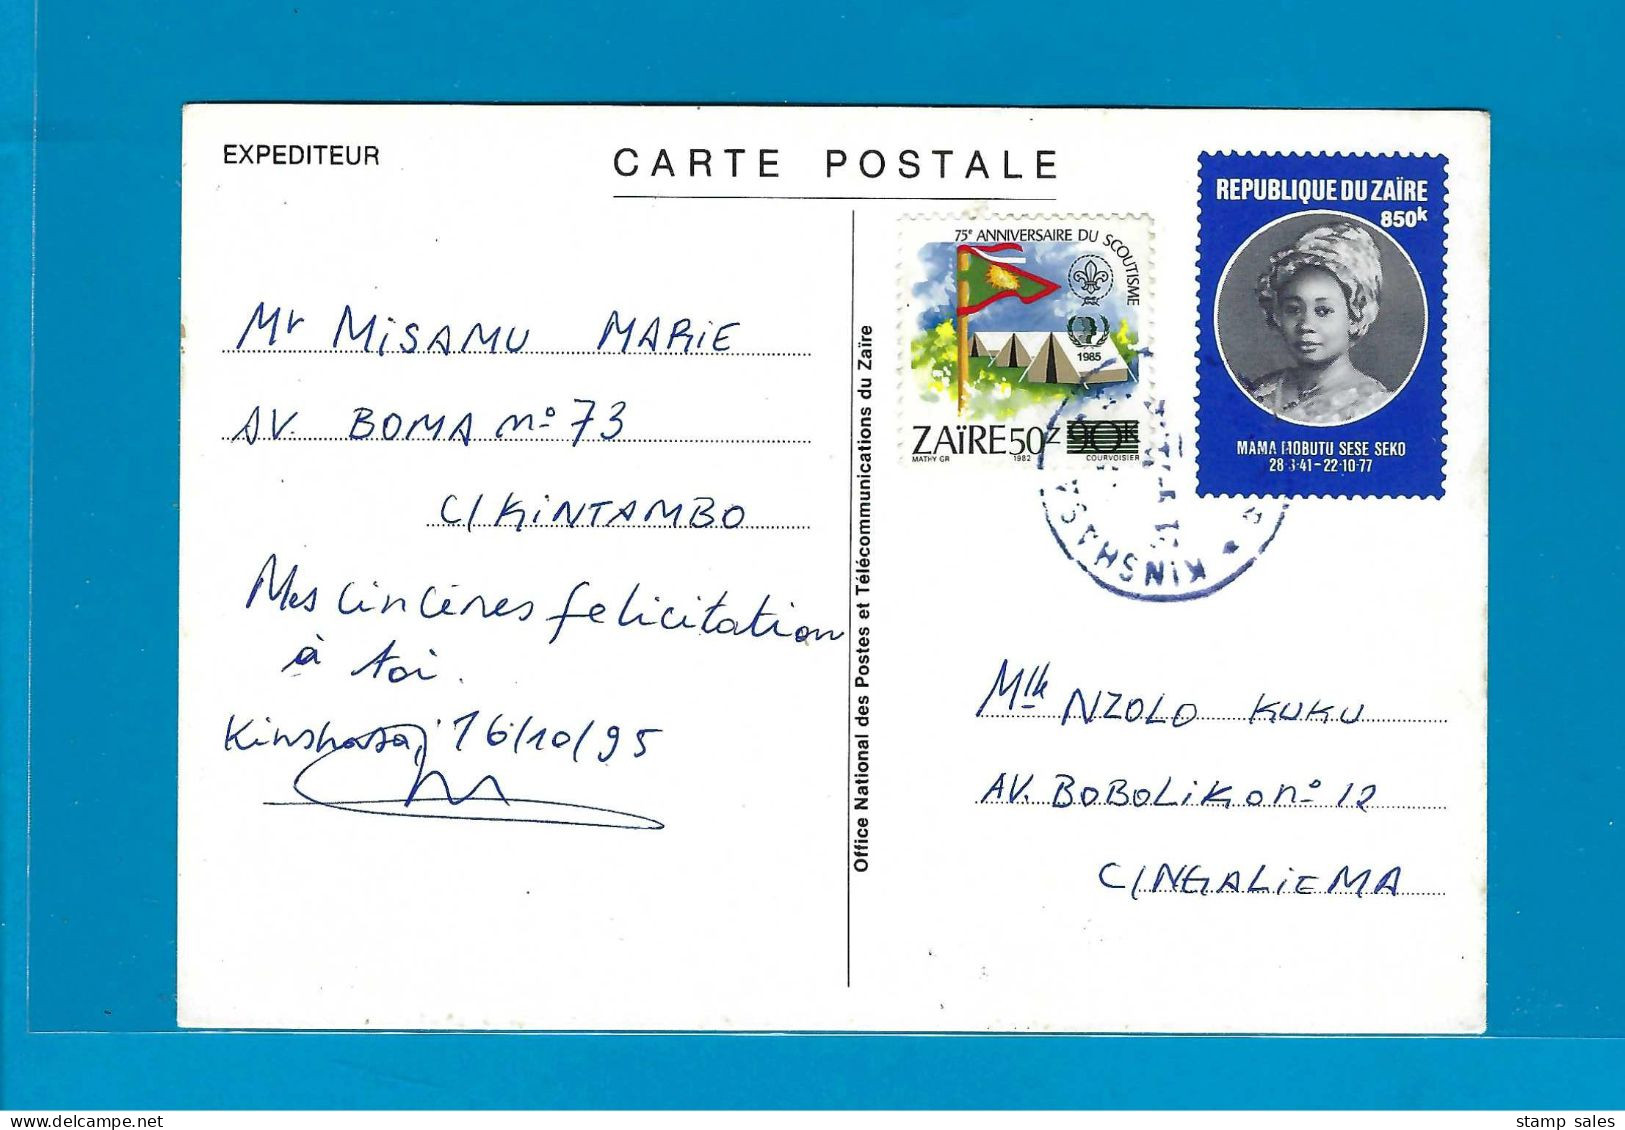 EXPEDITEUR
CARTE POSTALE
REPUBLIQUE DU ZAÏRE
850K
MAMA MOBUTU SESE SEKO
28·3·41-22·10·77
75e ANNIVERSAIRE DU SCOUTISME
1985
ZAÏRE 50Z 90K
MATHY GR 1982 COURVOISIER
KINSHASA
Mr MiSAMU MARiE
AV. BOMA no 73
C/KiNTAMBO
Mes Cincères felicitation
à toi.
Kinshasa, 16/10/95
Office National des Postes et Télécommunications du Zaïre
Mlle NZOLO KUKU
AV. BOBOLiKO no 12
C/NGALiEMA
stamp sales